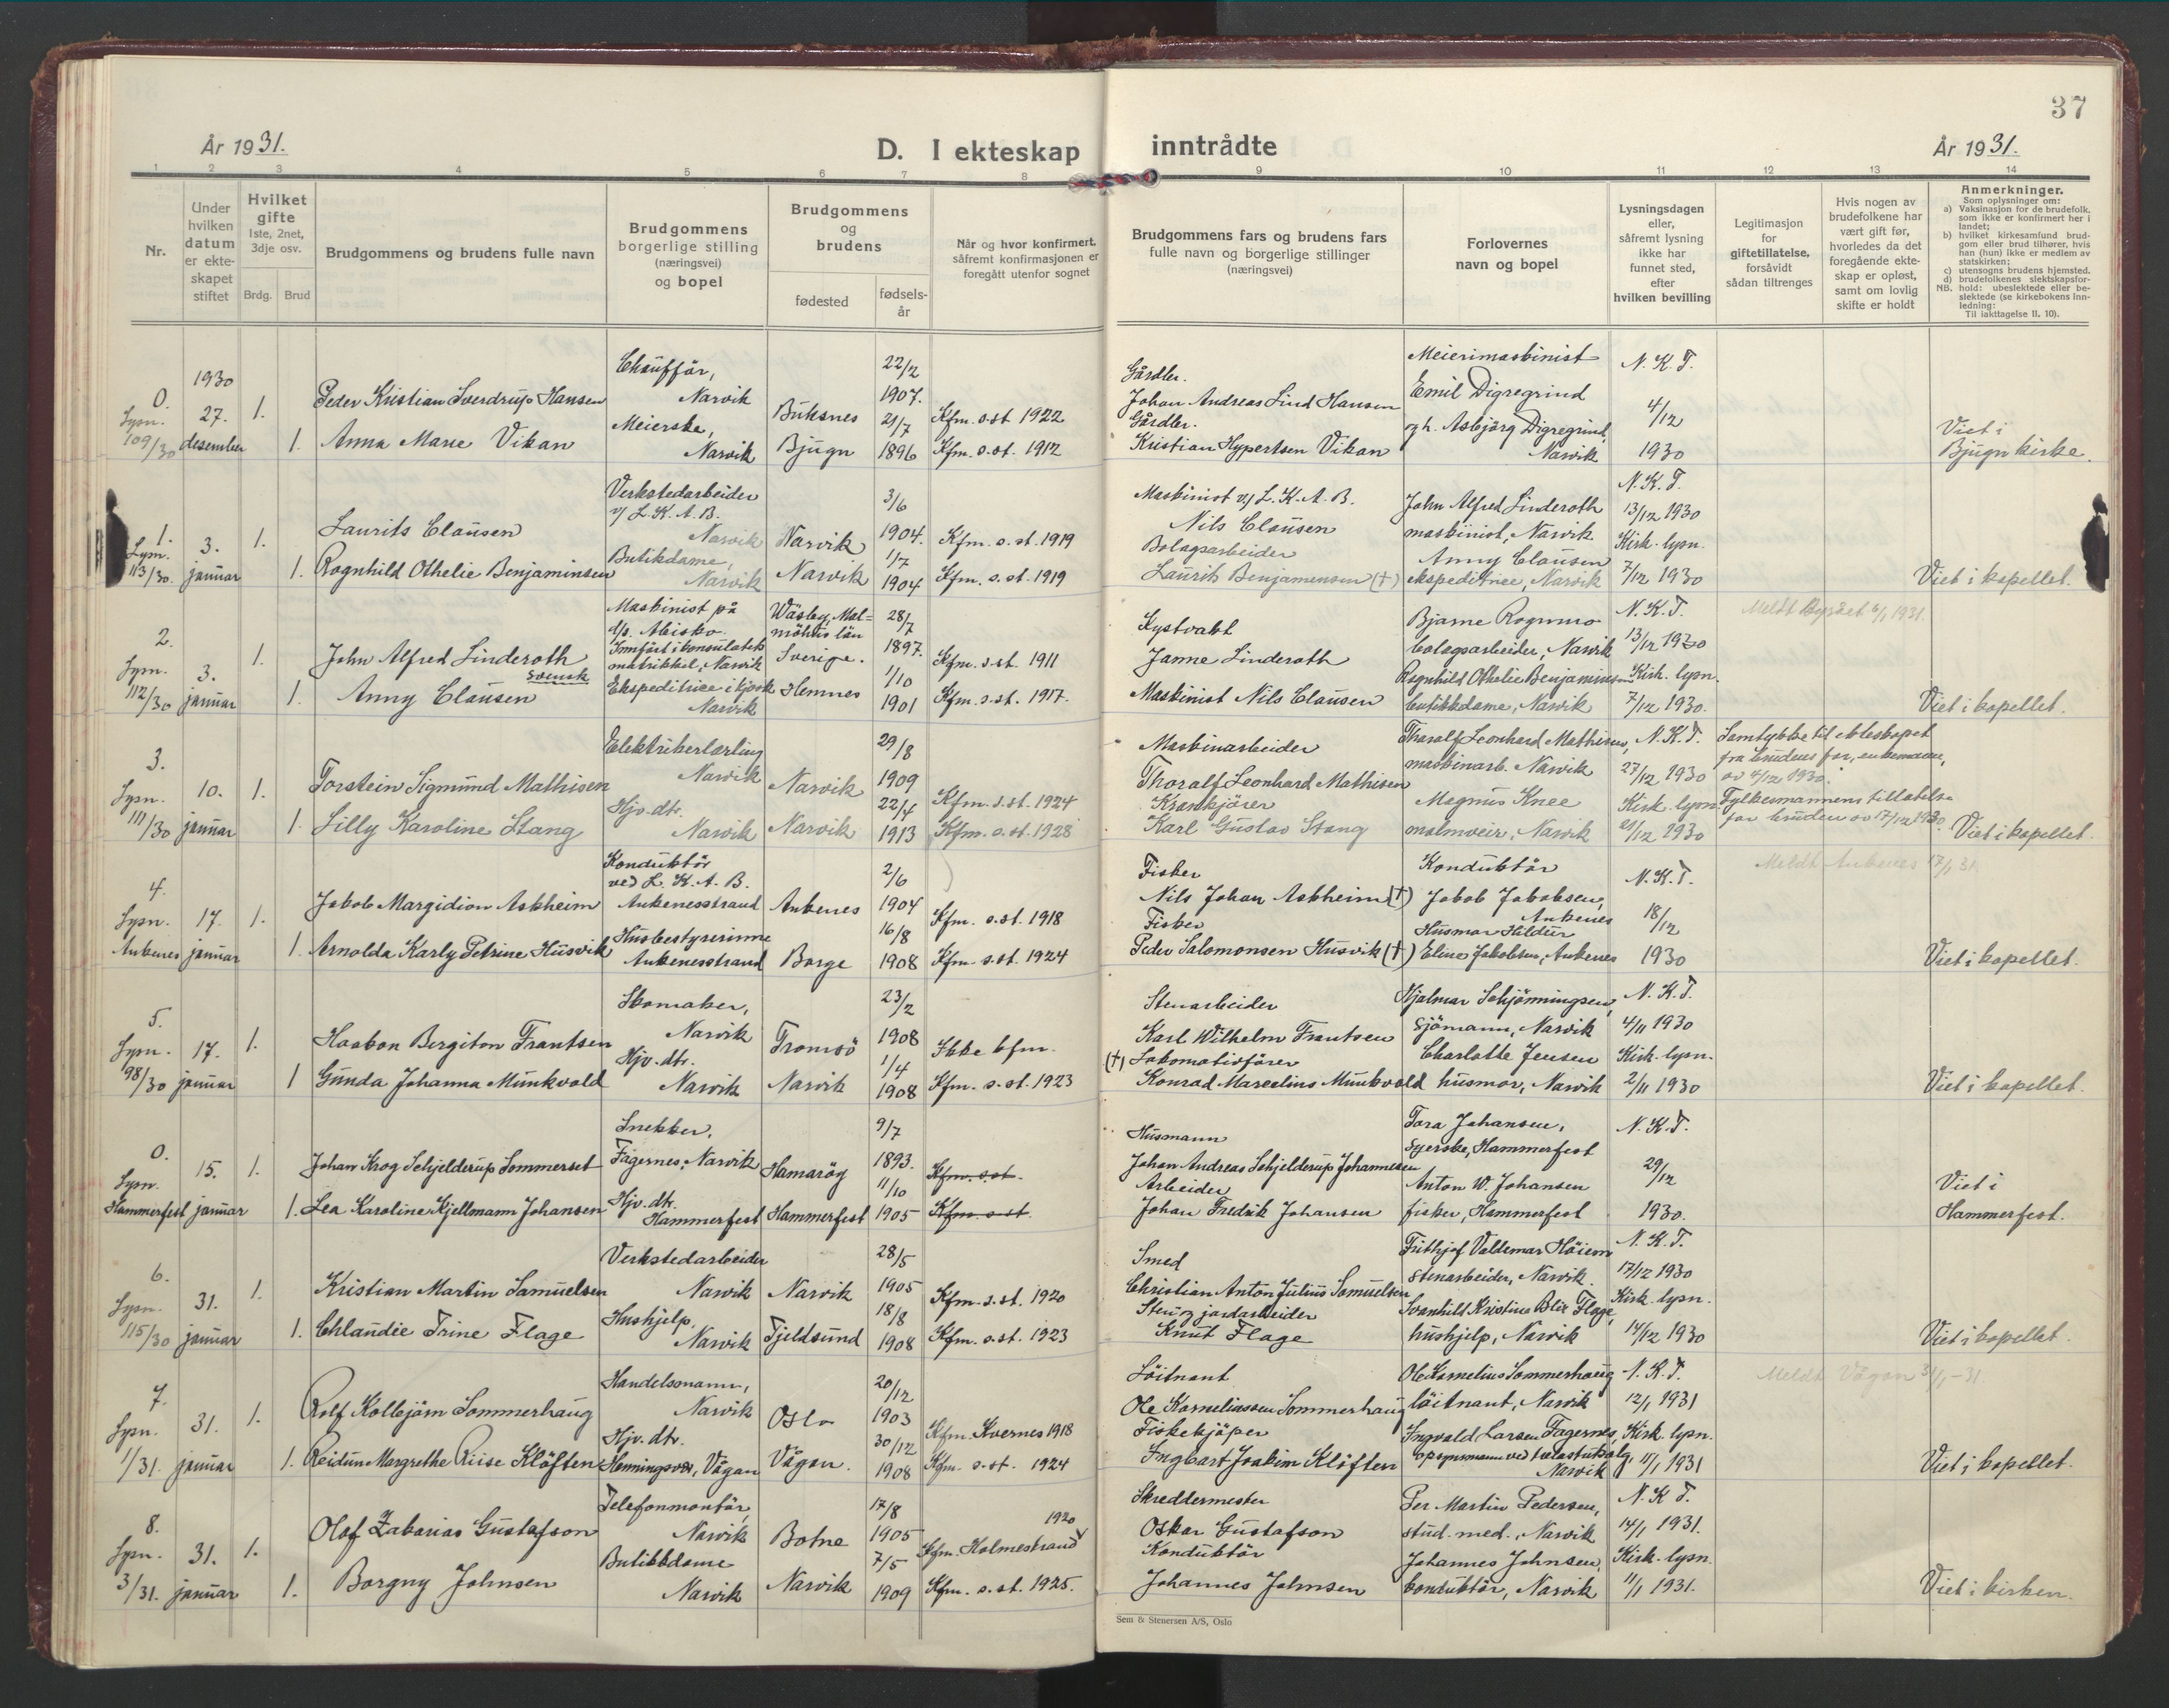 37
År 1931.
D. I ekteskap inntrådte
År 1931.
1 2 3 4 5 6 7 8 9 10 11 12 13 14
Nr.
Under hvilken datum er ekte-skapet stiftet
Hvilket gifte
1ste, 2net, 3dje osv.
Brdg. Brud
Brudgommens og brudens fulle navn
Brudgommens borgerlige stilling (næringsvei) og bopel
Brudgommens og brudens
fødested
fødsels-år
Når og hvor konfirmert, såfremt konfirmasjonen er foregått utenfor sognet
Brudgommens fars og brudens fars fulle navn og borgerlige stillinger (næringsvei)
Forlovernes navn og bopel
Lysningsdagen eller, såfremt lysning ikke har funnet sted, efter hvilken bevilling
Legitimasjon for giftetillatelse, forsåvidt sådan tiltrenges
Hvis nogen av brudefolkene har vært gift før, hvorledes da det foregående ekte-skap er opløst, samt om lovlig skifte er holdt
Anmerkninger.
Som oplysninger om:
a) Vaksinasjon for de brudefolk, som ikke er konfirmert her i landet;
b) hvilket kirkesamfund brud-gom eller brud tilhører, hvis han (hun) ikke er medlem av statskirken;
c) utensogns brudens hjemsted.
d) brudefolkenes slektskapsfor-hold: ubeslektede eller be-slektede (se kirkebokens inn-ledning:
NB. Til iakttagelse II, 10).
0. Lysn. 109/30
1930 27. desember
1. Peder Kristian Sverdrup Hansen
Chauffør, Narvik
Buksnes
22/2 1907.
Kfm. s.st 1922
Gårdbr.
Johan Andreas Lind Hansen
Meierimaskinist
Emil Digregrind
N. K. T.
1. Anna Marie Vikan
Meierske, Narvik
Bjugn
21/7 1896
Kfm. s.st. 1912
Gårdbr.
Kristian Hypertsen Vikan
og h. Asbjørg Digregrind, Narvik
4/12 1930
Viet i Bjugn kirke.
1. Lysn. 113/30.
3. januar
1. Laurits Clausen
Verkstedarbeider v/ L. K. A. B. Narvik
Narvik
3/6 1904.
Kfm. s.st. 1919
Maskinist v/ L. K. A. B.
Nils Clausen
John Alfred Linderoth
maskinist, Narvik
N. K. T.
13/12 1930
1. Ragnhild Othelie Benjaminsen
Butikdame, Narvik
Narvik
1/7 1904
Kfm. s.st. 1919
Bolagsarbeider
Laurits Benjamensen (†)
Anny Clausen
ekspeditrice, Narvik
Kirk. lysn.
7/12 1930
Viet i kapellet.
2. Lysn. 112/30
3. januar
1. John Alfred Linderoth
svensk
Maskinist på d/s. Abisko.
Innført i konsulatets matrikkel, Narvik
Wäsby, Mal-möhus län Sverige.
28/7 1897.
Kfm. s.st. 1911
Kystvakt
Janne Linderoth
Bjarne Rognmo
bolagsarbeider, Narvik
N. K. T.
13/12 1930
Meldt 6/1 1931.
1. Anny Clausen
Ekspeditrice i kjosk Narvik
Hemnes
1/10 1901
Kfm. s.st. 1917.
Maskinist Nils Clausen
Ragnhild Othelie Benjaminsen
butikkdame, Narvik
Kirk. lysn.
7/12 1930.
Viet i kapellet.
3. Lysn. 111/30
10. januar
1. Torstein Sigmund Mathisen
Elektrikerlærling Narvik
Narvik
29/8 1909
Kfm. s.st. 1924
Maskinarbeider
Thoralf Leonhard Mathisen
Thoralf Leonhard Mathisen,
maskinarb. Narvik
N. K. T.
27/12 1930
Samtykke til ekteskapet fra brudens far, enkemann, av 4/12 1930.
1. Lilly Karoline Stang
Hjv. dtr. Narvik
Narvik
22/4 1913
Kfm. s.st. 1928
Krankjører
Karl Gustav Stang
Magnus Knee
malmveier, Narvik
Kirk. lysn.
21/12 1930
Fylkesmannens tillatelse for bruden av 17/12 1930.
Viet i kapellet.
4. Lysn. Ankenes
17. januar
1. Jakob Margidion Askheim
Konduktør ved L. K. A. B. Ankenesstrand
Ankenes
2/6 1904
Kfm. s.st. 1918
Fisker
Nils Johan Askheim (†)
Konduktør
Jakob Jakobsen, Ankenes
N. K. T.
Meldt Ankenes 17/1 31
1. Arnolda Karly Petrine Husvik
Husbestyrerinne Ankenesstrand
Borge
16/8 1908
Kfm. s.st. 1924
Fisker
Peder Salomonsen Husvik (†)
Husmor Hildur
Eline Jakobsen, Ankenes
18/12 1930
Viet i kapellet.
5. Lysn. 98/30
17. januar
1. Haakon Bergiton Frantsen
Skomaker, Narvik
Tromsö
23/2 1908
Ikke kfm.
Stenarbeider
Karl Wilhelm Frantsen
Hjalmar Schjönningsen,
sjömann, Narvik
N. K. T.
4/11 1930
1 Gunda Johanna Munkvold
Hjv. dtr. Narvik
Narvik
1/4 1908
Kfm. s.st. 1923
(†) Lokomotivfører
Konrad Marselius Munkvold
Charlotte Jensen
husmor, Narvik
Kirk. lysn.
2/11 1930
Viet i kapellet.
0. Lysn. Hammerfest
15. januar
1. Johan Krog Schjelderup Sommerset
Snekker, Fagernes, Narvik
Hamaröy
9/7 1893.
Kfm. s.st.
Husmann
Johan Andreas Schjelderup Johannesen
Tora Johansen,
syerske, Hammerfest
N. K. T.
1. Lea Karoline Kjellmann Johansen
Hjv. dtr. Hammerfest
Hammerfest
11/10 1905
Kfm. s.st.
Arbeider
Johan Fredrik Johansen
Anton W. Johansen
fisker, Hammerfest
29/12 1930.
Viet i Hammerfest.
6. Lysn. 115/30
31. januar
1. Kristian Martin Samuelsen
Verkstedarbeider Narvik
Narvik
28/5 1905
Kfm. s.st. 1920
Smed
Christian Anton Julius Samuelsen
Frithjof Valdemar Höiem
stenarbeider, Narvik.
N. K. T.
17/12 1930
1. Chlaudie Trine Flage
Hushjelp, Narvik
Tjeldsund
18/8 1908
Kfm. s.st. 1923
Sten og jordarbeider
Knut Flage
Svanhild Kristine Blix Flage,
hushjelp, Narvik
Kirk. lysn.
14/12 1930
Viet i kapellet.
7. Lysn. 1/31.
31. januar
1. Rolf Kollbjørn Sommerhaug
Handelsmann, Narvik
Oslo
20/12 1903
Kfm. Kvernes 1918
Löitnant
Ole Korneliussen Sommerhaug
Ole Kornelius Sommerhaug
löitnant, Narvik
N. K. T.
12/1 1931
Meldt Vågan 31/1-31.
1. Reidun Margrethe Riise Klöften
Hjv. dtr. Henningsvær, Vågan
Vågan.
30/12 1908
Kfm. s.st. 1924
Fiskekjöper
Ingbart Joakim Klöften
Ingvald Larsen Fagernes,
opsynsmann ved Narvik
Kirk. lysn.
11/1 1931
Viet i kapellet.
8. Lysn. 3/31.
31. januar
1. Olaf Zakarias Gustafson
Telefonmontør, Narvik
Botne
17/8 1905
Kfm. Holmestrand 1920
Skreddermester
Oskar Gustafson
Per Martin Pedersen,
stud. med., Narvik
N. K T.
14/1 1931.
1. Borgny Johnsen
Butikkdame Narvik
Narvik
7/5 1909
Kfm. s.st. 1925.
Konduktør
Johannes Johnsen
Johannes Johnsen,
konduktør, Narvik
Kirk. lysn.
11/1 1931.
Viet i kirken.
Sem & Stenersen A/S, Oslo